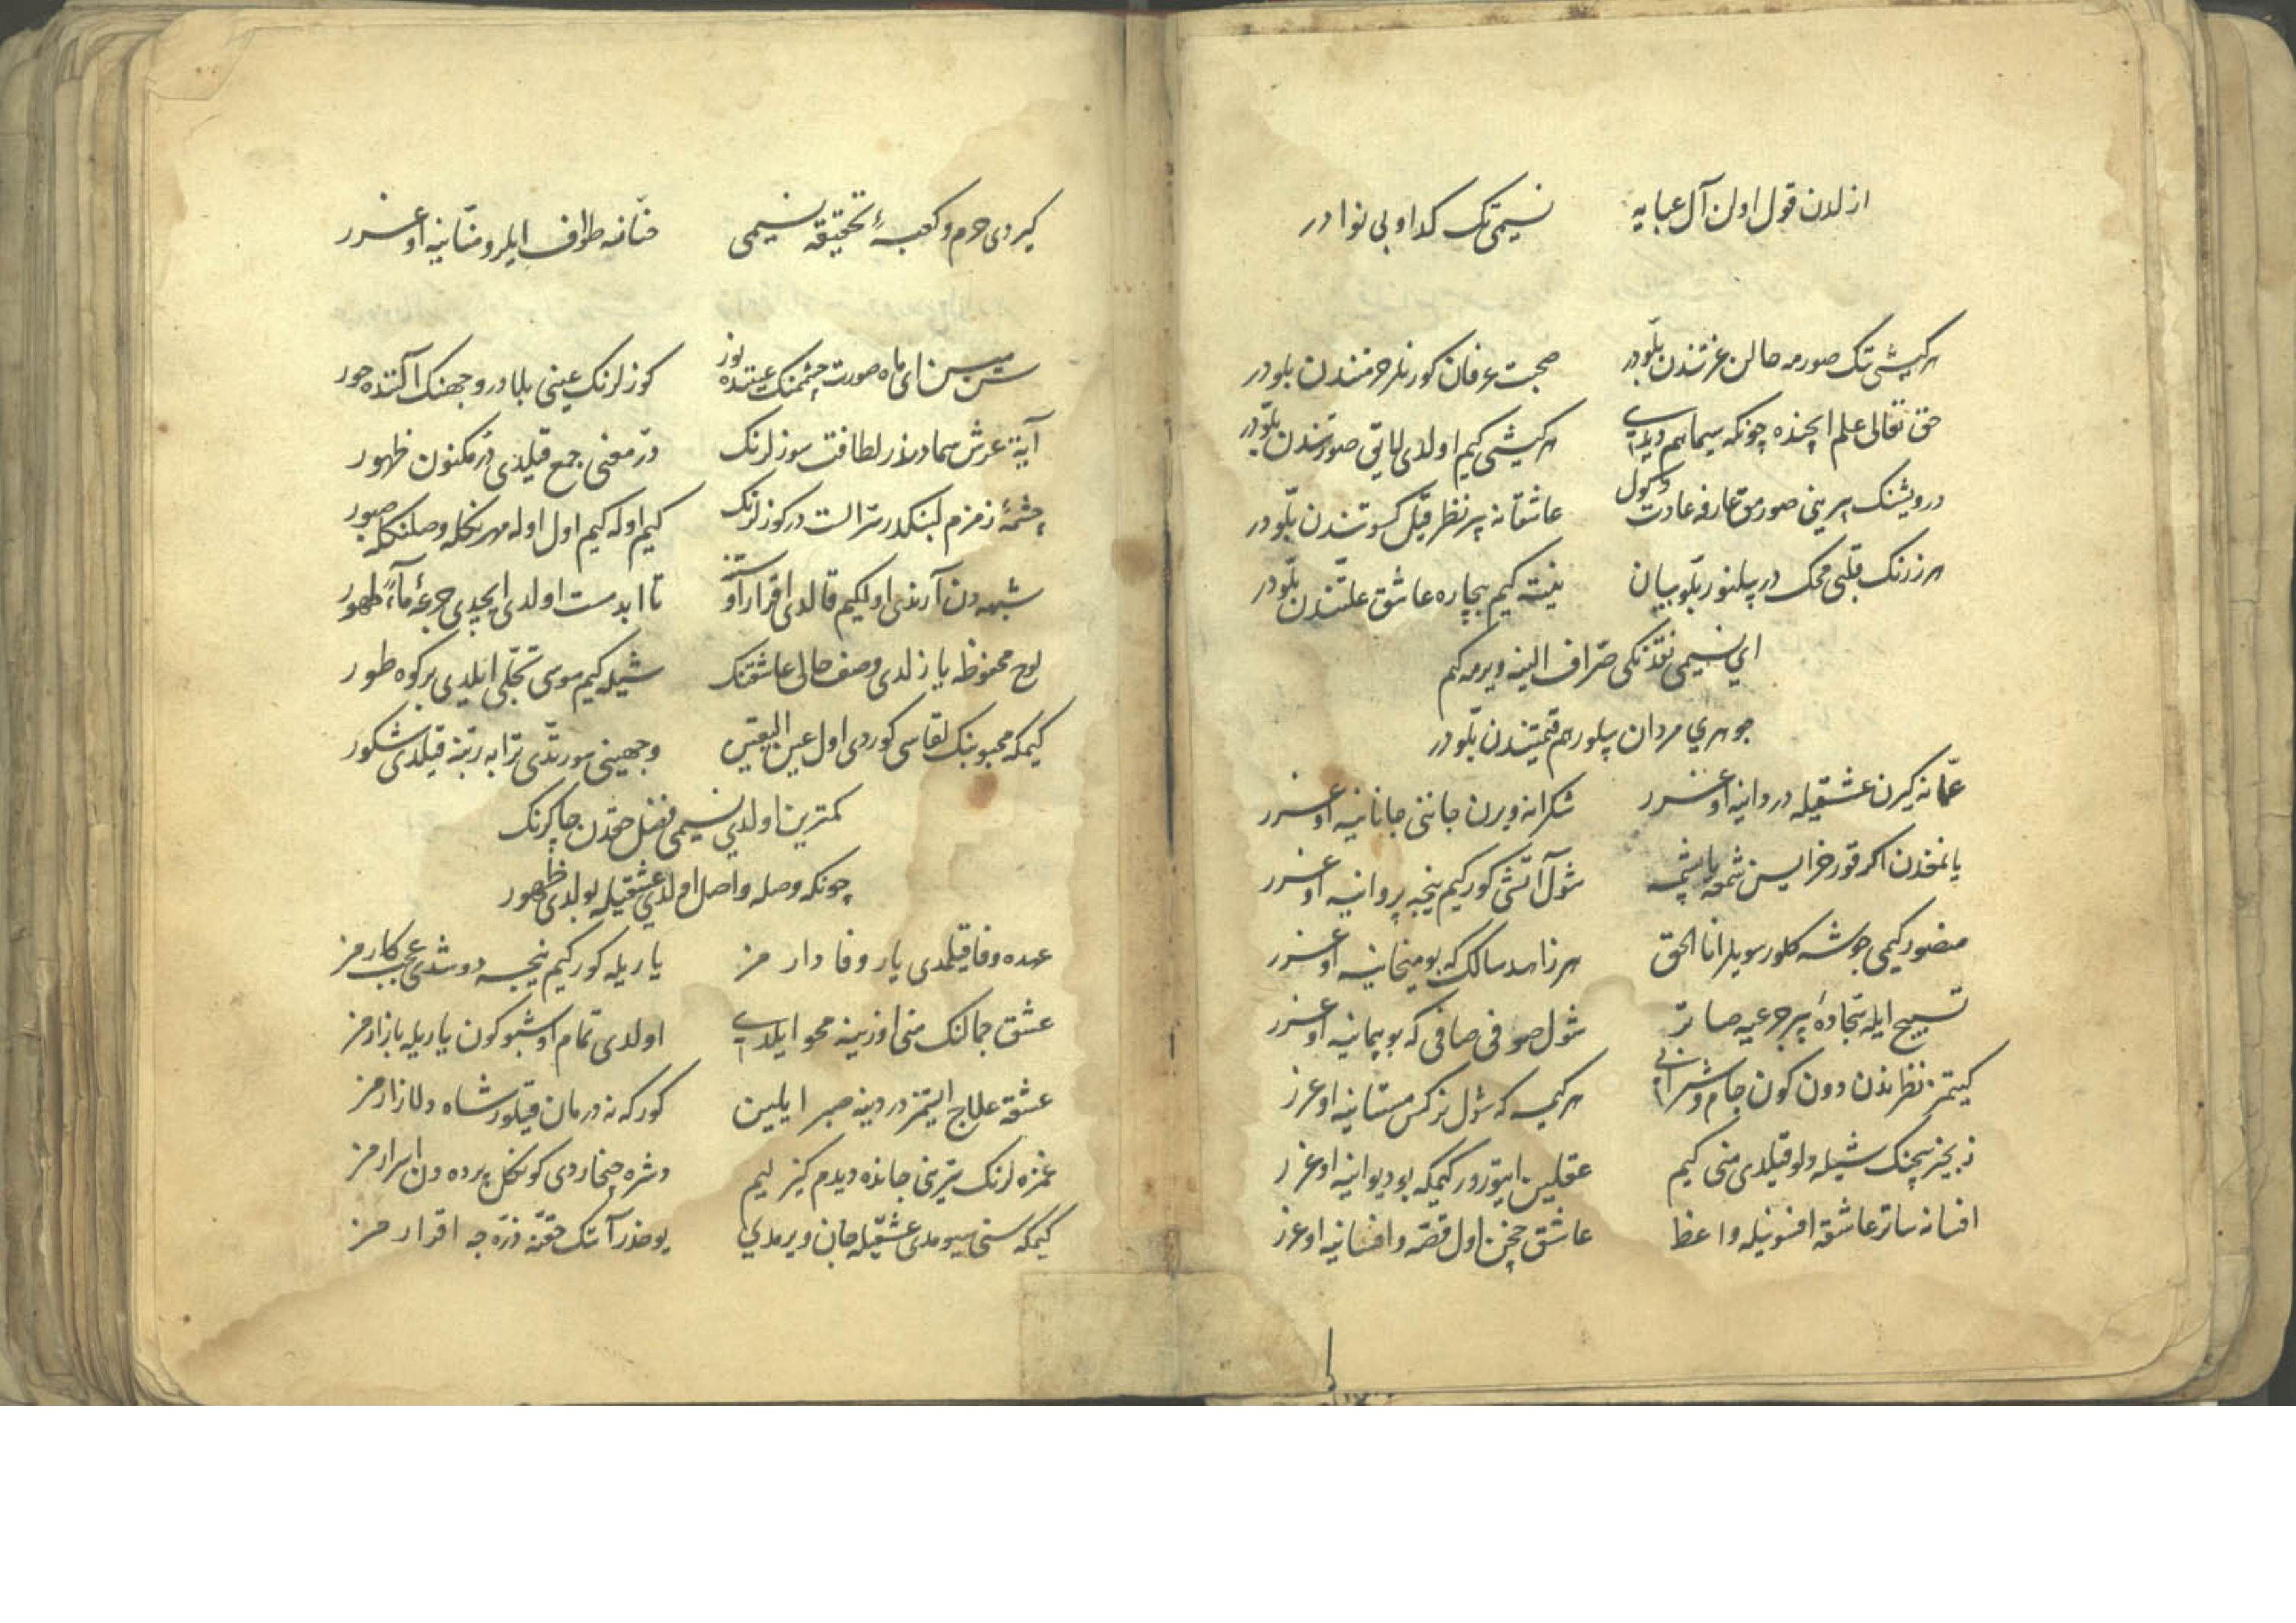 ازلدن قول اولن آل عبایه نسیمی تک کدا و بی نوا در
هر کیشی تک صورمه حالن عزتندن بللودر صحبت عرفان کورنلر حرمتندن بللودر
حق تعالی علم ایچنده چونکه سیماهم دیدی هر کیشی کیم اولدی لایق صورتندن بللودر
درویشنک سرینی صورمق عارفه عادت دکول عاشقانه بر نظر قیل کسوتندن بللودر
هر زرنک قلبی محک در بیلنور بللو بیان نیته کیم بیچاره عاشق علتندن بللودر
ای نسیمی نقدنکی صراف الینه ویرمه کیم
جوهری مردان بیلور هم قیمتندن بللودر
عمانه کیرن عشقیله دردانیه اوغرر شکرانه ویرن جاننی جانانیه اوغرر
یانمغدن اکر قورخرایسن شمعه یاپشمه شول آتشی کور کیم نیجه پروانیه اوغرر
منصور کیمی جوشه کلور سویلر انا الحق هر زاهد سالک که بو میخانیه اوغرر
تسبیح ایله سجادهٔ بر جرعیه صاتر شول صوفی صافی که بو پیمانیه اوغرر
کیتمز نظرندن دون کون جام و شرابی هر کیمسه که شول نرکس مستانیه اوغرر
زنجیر سچنک شیله دلو قیلدی منی کیم عقلین ایتورور کیمکه بو دیوانیه اوغرر
افسانه ساتر عاشقه افسونیله واعظ عاشق چخن اول قصه و افسانیه اوغرر
کیردی حرم و کعبهٔ تحقیقه نسیمی حنانه طواف ایلر و منانیه اوغرر
سن سن ای ماه صورت چشمنک عیننده نور کوزلرنک عینی بلادر وجهنک آلنده حور
آیة عرش سمادرلر لطافت سوزلرنک در معنی جمع قیلدی در مکنون ظهور
چشمهٔ زمزم لبنکدر سر الست در کوزلرنک کیم اوله کیم اول اوله مهرنکله وصلنکله صبور
شبهه دن آرندی اولکیم قالدی اقرار اوستنه تا ابد مست اولدی ایچدی جرعهٔ ماء طهور
لوح محفوظه یازلدی وصف حالی عاشقنک شیله کیم موسی تجلی ایلدی بر کوه طور
کیمکه محبوبنک لقاسی کوردی اول عین الیقین وجهینی سورتدی ترابه ربنه قیلدی شکور
کمترین اولدی نسیمی فضل حقدن چاکرنک
چونکه وصله واصل اولدی عشقیله بولدی ظهور
عهده وفا قیلمدی یار وفا دار مز یاریله کور کیم نیجه دوشدی عجب کار مز
عشق جمالنک منی اوزینه محو ایلدی اولدی تمام اوشبو کون یاریله بازار مز
عشقه علاج ایستمز دردینه صبر ایلین کور که نه درمان قیلور شاه دلازار مز
غمزه لرنک تیرینی جانده دیدم کیزلیم دشره چخاردی کونکل پرده دن اسرار مز
کیمکه سنی سیومدی عشقیله جان ویرمدی یوخدر آنک حقنه ذره جه اقرار مز